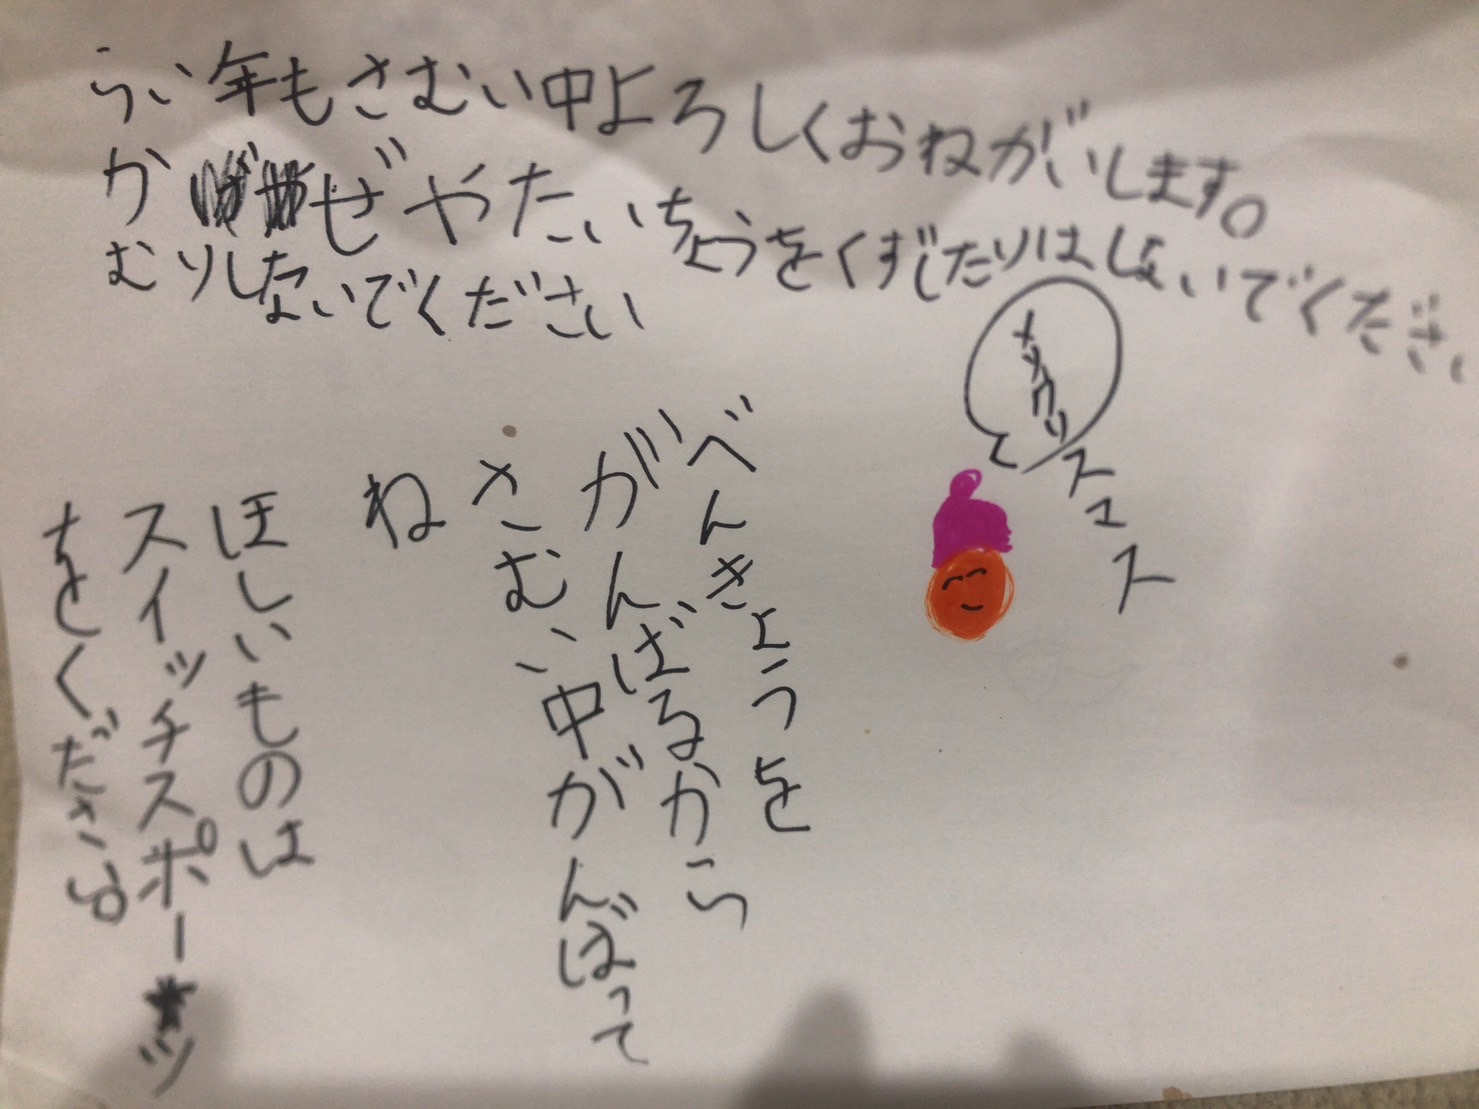 らい年もさむい中よろしくおねがいします。
かぜやたいちょうをくずしたりはしないでください
むりしないでください
メリクリ
スマス
べんきょうを
がんばるから
さむい中がんばって
ね
ほしいものは
スイッチスポーツ
をください。